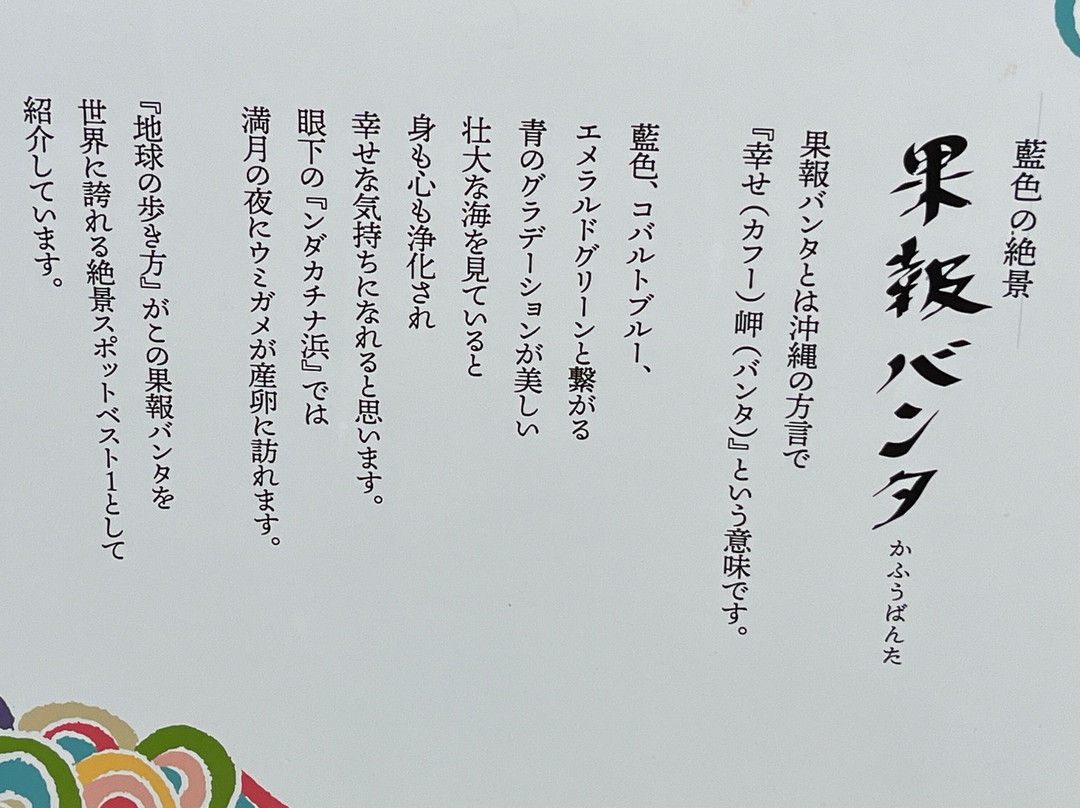 藍色の絶景
果報バンタ
かふうばんた
果報バンタとは沖縄の方言で
『幸せ(カフー)岬(バンタ)』という意味です。
藍色、コバルトブルー、
エメラルドグリーンと繋がる
青のグラデーションが美しい
壮大な海を見ていると
身も心も浄化され
幸せな気持ちになれると思います。
眼下の『ンダカチナ浜』では
満月の夜にウミガメが産卵に訪れます。
『地球の歩き方』がこの果報バンタを
世界に誇れる絶景スポットベスト1として
紹介しています。